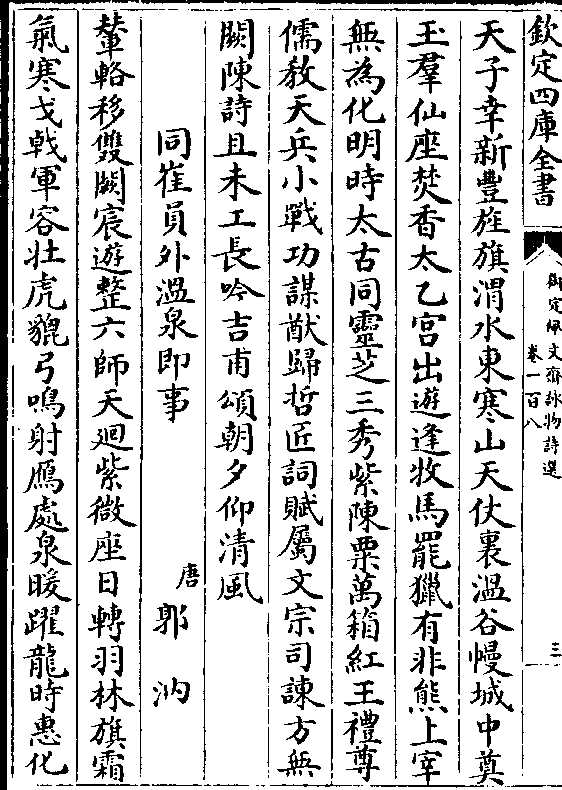 欽定四庫全書
御定佩文齋詠物詩選
卷一百八
三
天子幸新豐旌旗渭水東寒山天仗裏溫谷幔城中奠
玉羣仙座焚香太乙宮出遊逢牧馬罷獵有非熊上宰
無為化明時太古同靈芝三秀紫陳粟萬箱紅王禮尊
儒教天兵小戰功謀猷歸哲匠詞賦屬文宗司諫方無
闕陳詩且未工長吟吉甫頌朝夕仰清風
同崔員外溫泉即事
唐
郭汭
輦輅移雙闕宸遊整六師天迴紫微座日轉羽林旗霜
氣寒戈戟軍容壯虎貔弓鳴射鴈處泉暖躍龍時惠化